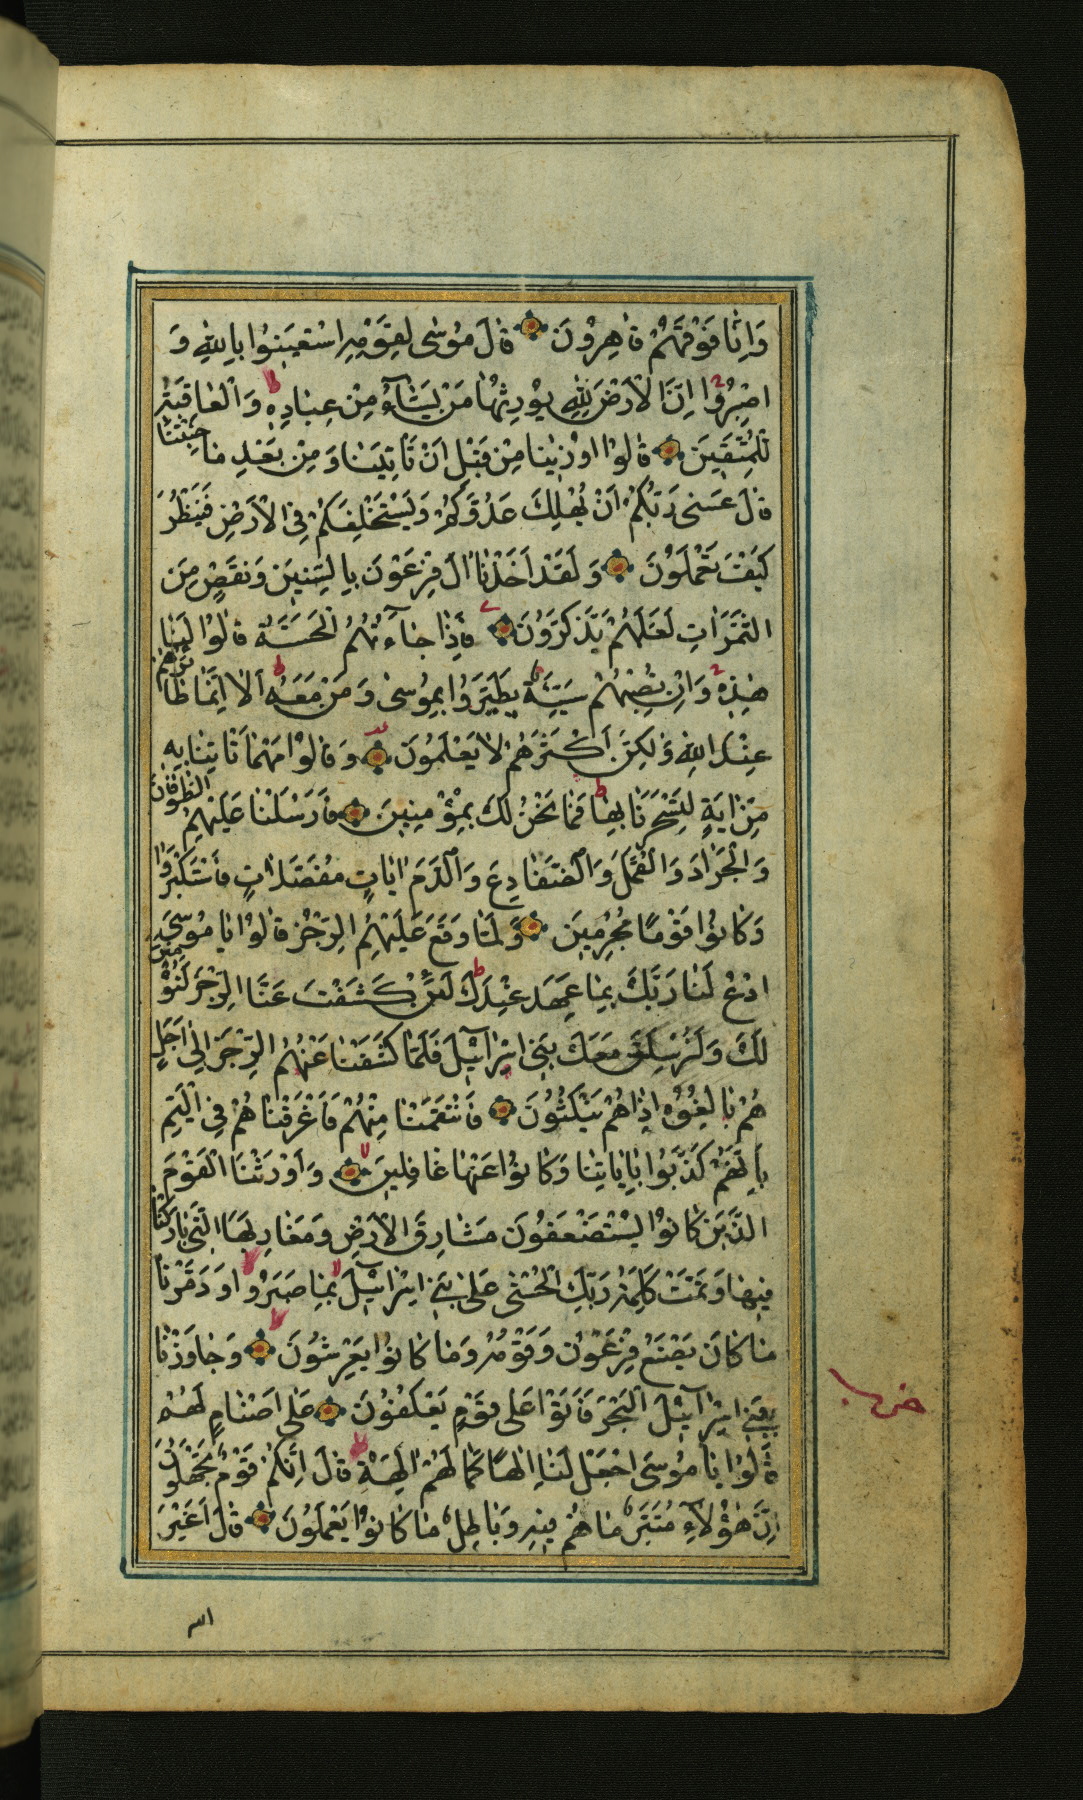 وَاِنّٰا فَوْقَهُمْ قٰاهِرُونَ قٰالَ مُوسٰى لِقَوْمِهِ اسْتَعِينُوا بِاللّٰهِ وَ
اصْبِرُوا اِنَّ الْاَرْضَ لِلّٰهِ يُورِثُهٰا مَنْ يَشٰآءُ مِنْ عِبٰادِهِ وَالْعٰاقِبَةُ
لِلْمُتَّقِينَ قٰالُوا اُوذِينٰا مِنْ قَبْلِ اَنْ تَأْتِيَنٰا وَمِنْ بَعْدِ مٰا جِئْتَنٰا
قٰالَ عَسٰى رَبُّكُمْ اَنْ يُهْلِكَ عَدُوَّكُمْ وَيَسْتَخْلِفَكُمْ فِى الْاَرْضِ فَيَنْظُرَ
كَيْفَ تَعْمَلُونَ وَلَقَدْ اَخَذْنٰا اٰلَ فِرْعَوْنَ بِالسِّنِينَ وَنَقْصٍ مِنَ
الثَّمَرَاتِ لَعَلَّهُمْ يَذَّكَّرُونَ فَاِذٰا جٰآءَتْهُمُ الْحَسَنَةُ قٰالُوا لَنٰا
هٰذِهِ وَاِنْ تُصِبْهُمْ سَيِّئَةٌ يَطَّيَّرُوا بِمُوسٰى وَمَنْ مَعَهُ اَلٰا اِنَّمٰا طٰائِرُهُمْ
عِنْدَ اللّٰهِ وَلٰكِنَّ اَكْثَرَهُمْ لٰا يَعْلَمُونَ وَقٰالُوا مَهْمٰا تَأْتِنٰا بِهِ
مِنْ اٰيَةٍ لِتَسْحَرَنٰا بِهٰا فَمٰا نَحْنُ لَكَ بِمُؤْمِنِينَ فَاَرْسَلْنٰا عَلَيْهِمُ الطُّوفٰانَ
وَالْجَرٰادَ وَالْقُمَّلَ وَالضَّفٰادِعَ وَالدَّمَ اٰيٰاتٍ مُفَصَّلٰاتٍ فَاسْتَكْبَرُوا
وَكٰانُوا قَوْمًا مُجْرِمِينَ وَلَمّٰا وَقَعَ عَلَيْهِمُ الرِّجْزُ قٰالُوا يٰا مُوسَى
ادْعُ لَنٰا رَبَّكَ بِمٰا عَهِدَ عِنْدَكَ لَئِنْ كَشَفْتَ عَنَّا الرِّجْزَ لَنُؤْمِنَنَّ
لَكَ وَلَنُرْسِلَنَّ مَعَكَ بَنِى اِسْرٰآئِيلَ فَلَمّٰا كَشَفْنٰا عَنْهُمُ الرِّجْزَ اِلٰى اَجَلٍ
هُمْ بٰالِغُوهُ اِذٰا هُمْ يَنْكُثُونَ فَانْتَقَمْنٰا مِنْهُمْ فَاَغْرَقْنٰاهُمْ فِى الْيَمِّ
بِاَنَّهُمْ كَذَّبُوا بِاٰيٰاتِنٰا وَكٰانُوا عَنْهٰا غٰافِلِينَ وَاَوْرَثْنَا الْقَوْمَ
الَّذِينَ كٰانُوا يُسْتَضْعَفُونَ مَشٰارِقَ الْاَرْضِ وَمَغٰارِبَهَا الَّتِى بٰارَكْنٰا
فِيهٰا وَتَمَّتْ كَلِمَةُ رَبِّكَ الْحُسْنٰى عَلٰى بَنِى اِسْرٰآئِيلَ بِمٰا صَبَرُوا وَدَمَّرْنٰا
مٰا كٰانَ يَصْنَعُ فِرْعَوْنُ وَقَوْمُهُ وَمٰا كٰانُوا يَعْرِشُونَ وَجٰاوَزْنٰا
بِبَنِى اِسْرٰآئِيلَ الْبَحْرَ فَاَتَوْا عَلٰى قَوْمٍ يَعْكُفُونَ عَلٰى اَصْنٰامٍ لَهُمْ
قٰالُوا يٰا مُوسَى اجْعَلْ لَنٰا اِلٰهًا كَمٰا لَهُمْ اٰلِهَةٌ قٰالَ اِنَّكُمْ قَوْمٌ تَجْهَلُونَ
اِنَّ هٰؤُلٰآءِ مُتَبَّرٌ مٰا هُمْ فِيهِ وَبٰاطِلٌ مٰا كٰانُوا يَعْمَلُونَ قٰالَ اَغَيْرَ
الله